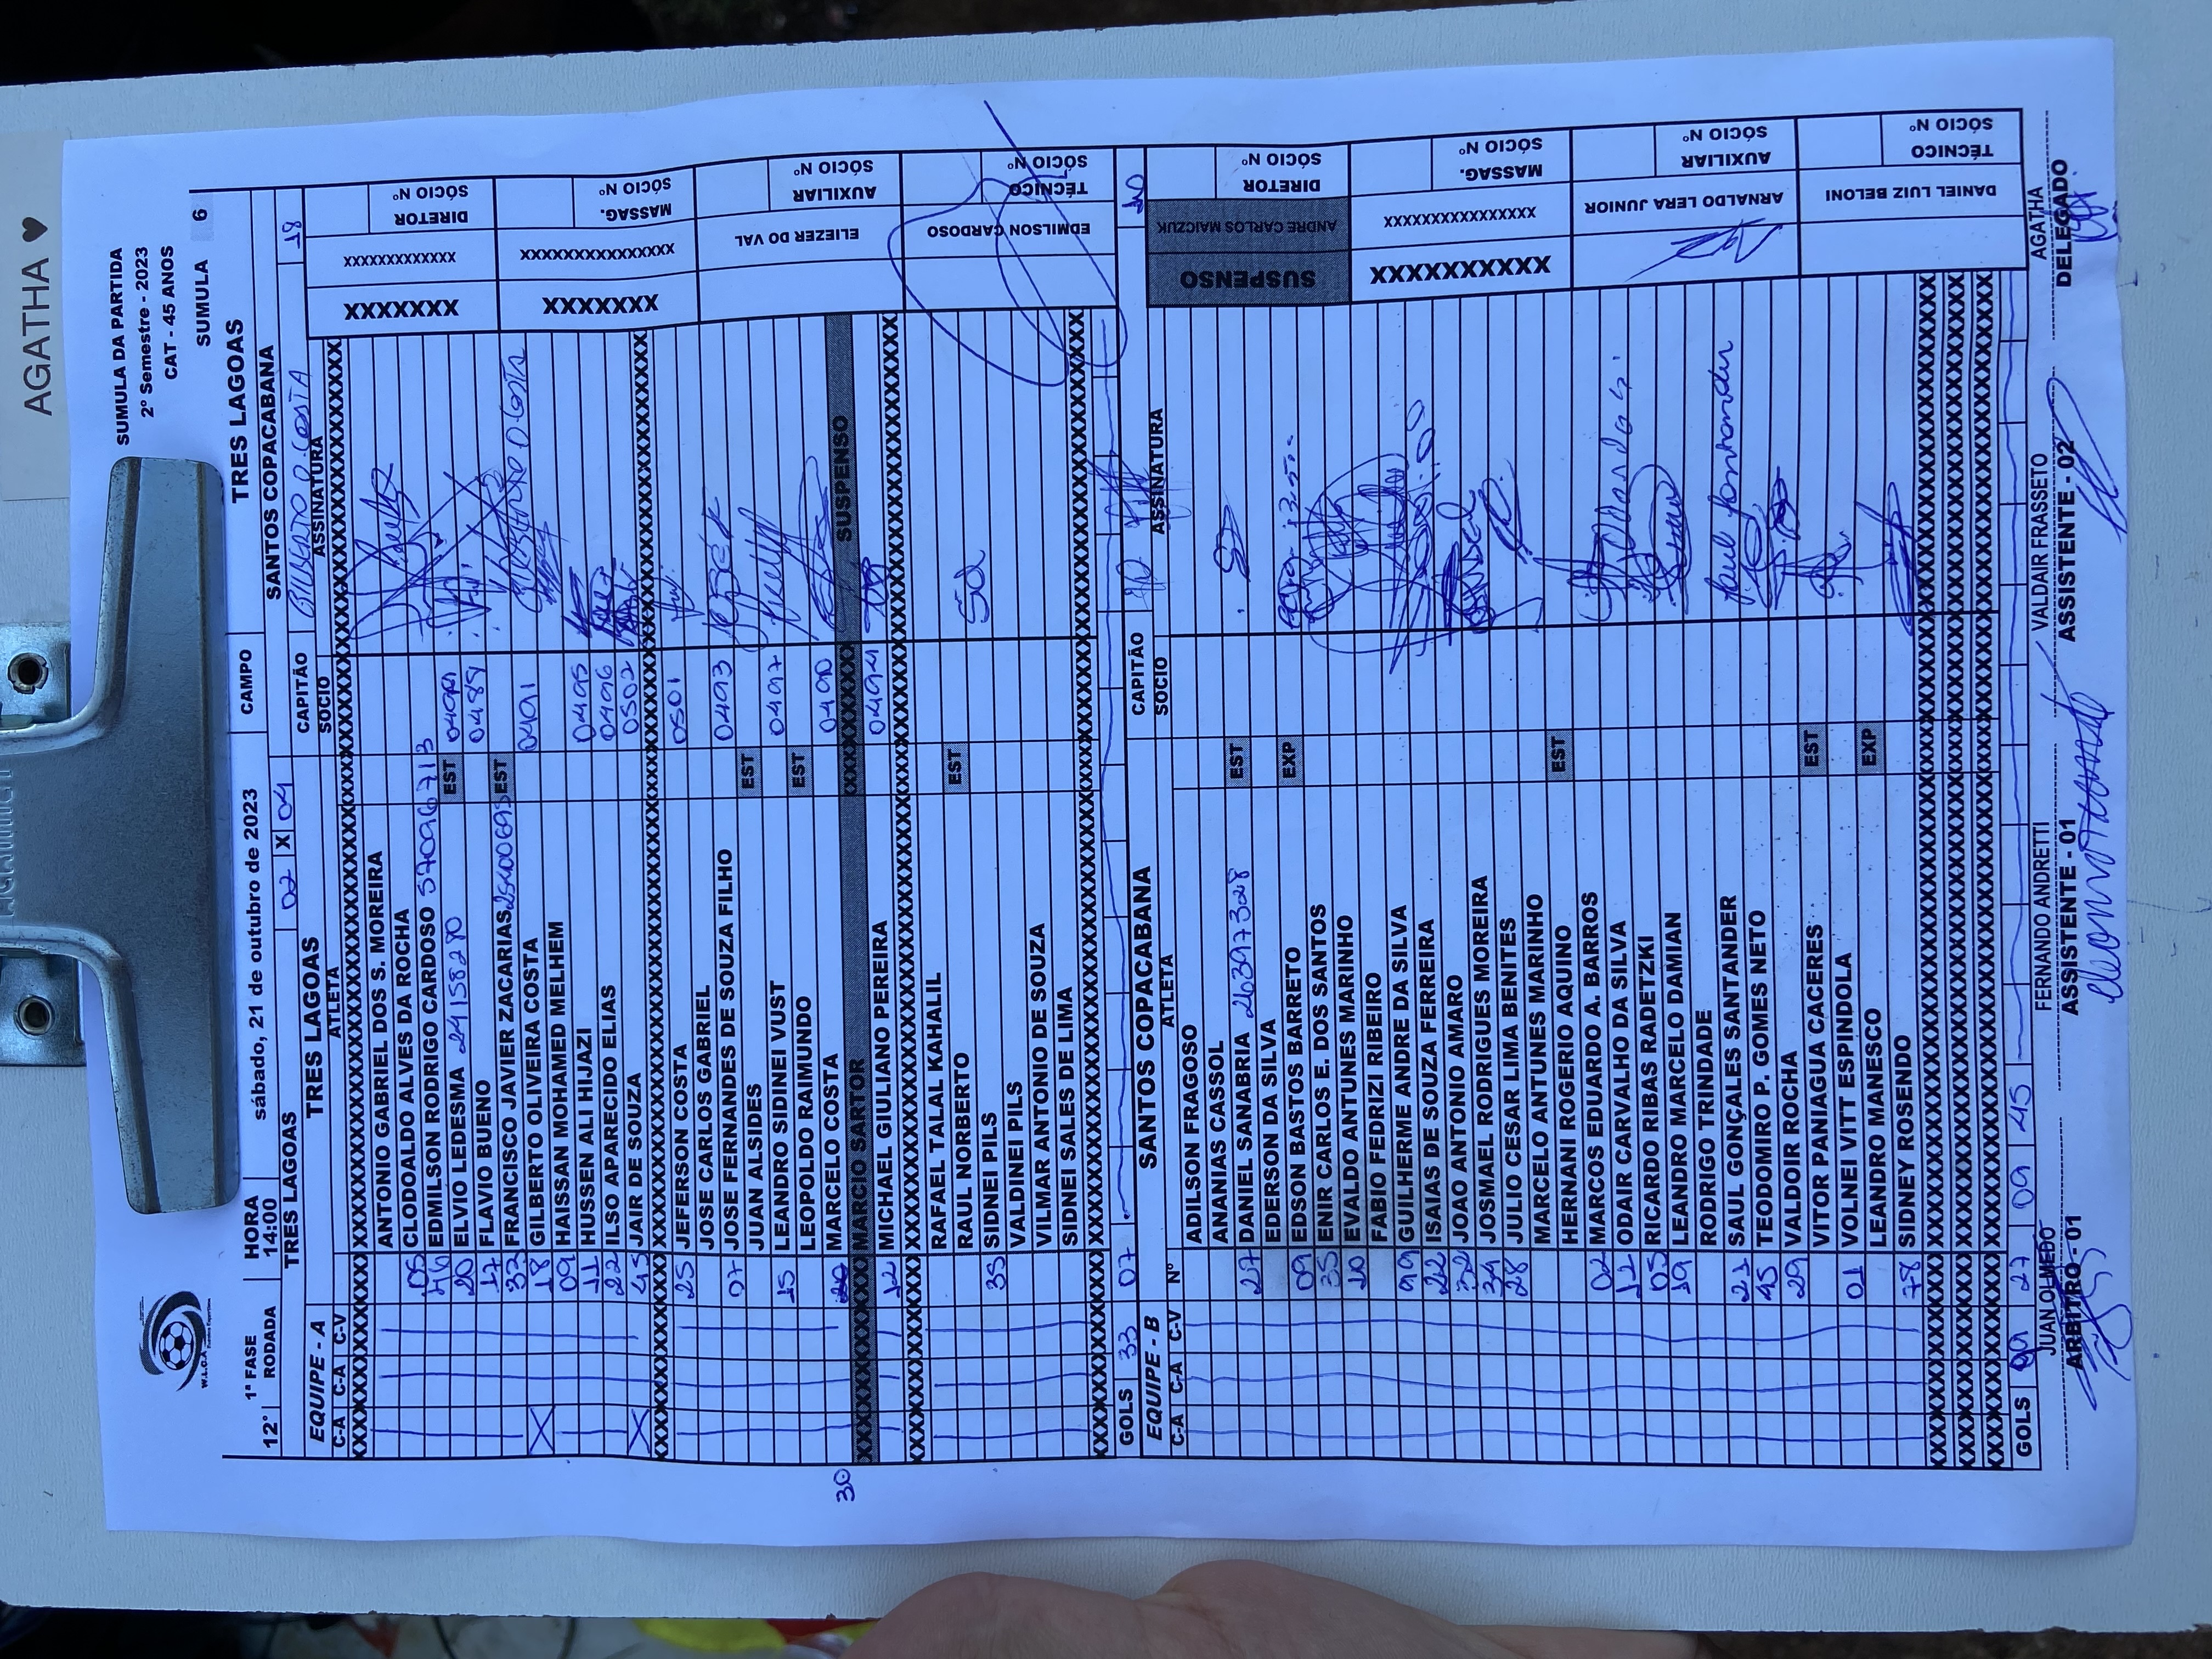 AGATHA ♥
SUMULA DA PARTIDA
2º Semestre - 2023
CAT - 45 ANOS
SUMULA 6
W.L.C.A
1ª FASE HORA sábado, 21 de outubro de 2023 CAMPO TRES LAGOAS
12° RODADA 14:00
TRES LAGOAS 02 X 04 SANTOS COPACABANA
EQUIPE - A TRES LAGOAS CAPITÃO GILBERTO O. COSTA 18
C-A C-A C-V ATLETA SOCIO ASSINATURA
ANTONIO GABRIEL DOS S. MOREIRA
05 CLODOALDO ALVES DA ROCHA
16 EDMILSON RODRIGO CARDOSO 57096713
20 ELVIO LEDESMA 24158280 EST
17 FLAVIO BUENO 0489
33 FRANCISCO JAVIER ZACARIAS EST
X 18 GILBERTO OLIVEIRA COSTA 0491
09 HAISSAN MOHAMED MELHEM
11 HUSSEN ALI HIJAZI 0495
22 ILSO APARECIDO ELIAS 0496
X 45 JAIR DE SOUZA 0502
25 JEFERSON COSTA 0501
JOSE CARLOS GABRIEL
07 JOSE FERNANDES DE SOUZA FILHO 0493
JUAN ALSIDES EST
15 LEANDRO SIDINEI VUST 0497
LEOPOLDO RAIMUNDO EST
30 MARCELO COSTA 0490
MARCIO SARTOR SUSPENSO
12 MICHAEL GIULIANO PEREIRA 0494
RAFAEL TALAL KAHALIL
RAUL NORBERTO EST
35 SIDNEI PILS
VALDINEI PILS
VILMAR ANTONIO DE SOUZA
SIDNEI SALES DE LIMA
GOLS 33 07
XXXXXXX XXXXXXXXXXXXX DIRETOR SÓCIO Nº
XXXXXXX XXXXXXXXXXXXXXXX MASSAG. SÓCIO Nº
ELIEZER DO VAL AUXILIAR SÓCIO Nº
EDMILSON CARDOSO TÉCNICO SÓCIO Nº
EQUIPE - B SANTOS COPACABANA CAPITÃO 10
C-A C-A C-V Nº ATLETA SOCIO ASSINATURA
ADILSON FRAGOSO
ANANIAS CASSOL
27 DANIEL SANABRIA 26397328 EST
EDERSON DA SILVA
09 EDSON BASTOS BARRETO EXP
35 ENIR CARLOS E. DOS SANTOS
10 EVALDO ANTUNES MARINHO
FABIO FEDRIZI RIBEIRO
99 GUILHERME ANDRE DA SILVA
22 ISAIAS DE SOUZA FERREIRA
32 JOAO ANTONIO AMARO
34 JOSMAEL RODRIGUES MOREIRA
28 JULIO CESAR LIMA BENITES
MARCELO ANTUNES MARINHO
HERNANI ROGERIO AQUINO EST
02 MARCOS EDUARDO A. BARROS
17 ODAIR CARVALHO DA SILVA
05 RICARDO RIBAS RADETZKI
19 LEANDRO MARCELO DAMIAN
RODRIGO TRINDADE
21 SAUL GONÇALES SANTANDER
45 TEODOMIRO P. GOMES NETO
29 VALDOIR ROCHA
VITOR PANIAGUA CACERES EST
01 VOLNEI VITT ESPINDOLA
LEANDRO MANESCO EXP
78 SIDNEY ROSENDO
GOLS 27 09 45
SUSPENSO ANDRE CARLOS MAICZUK DIRETOR SÓCIO Nº
XXXXXXXXXX XXXXXXXXXXXXXXXX MASSAG. SÓCIO Nº
ARNALDO LERA JUNIOR AUXILIAR SÓCIO Nº
DANIEL LUIZ BELONI TÉCNICO SÓCIO Nº
JUAN OLMEDO FERNANDO ANDRETTI VALDAIR FRASSETO AGATHA
ARBITRO - 01 ASSISTENTE - 01 ASSISTENTE - 02 DELEGADO